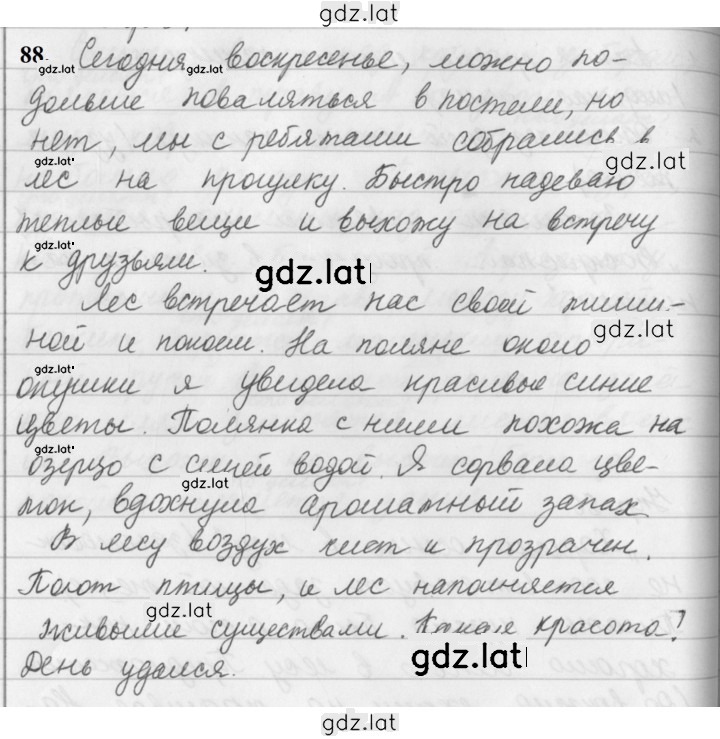 gdz.lat
88. Сегодня воскресенье, можно по-
gdz.lat gdz.lat
дольше поваляться в постели, но
нет, мы с ребятами собрались в
gdz.lat gdz.lat
лес на прогулку. Быстро надеваю
теплые вещи и выхожу на встречу
gdz.lat
к друзьям.
gdz.lat
Лес встречает нас своей тиши-
gdz.lat
ной и покоем. На поляне около
опушки я увидела красивые синие
цветы. Полянка с ними похожа на
gdz.lat
озерцо с синей водой. Я сорвала цве-
gdz.lat
ток, вдохнула ароматный запах
В лесу воздух чист и прозрачен.
Поют птицы, и лес наполняется
gdz.lat
живыми существами. Какая красота!
gdz.lat
День удался.
gdz.lat